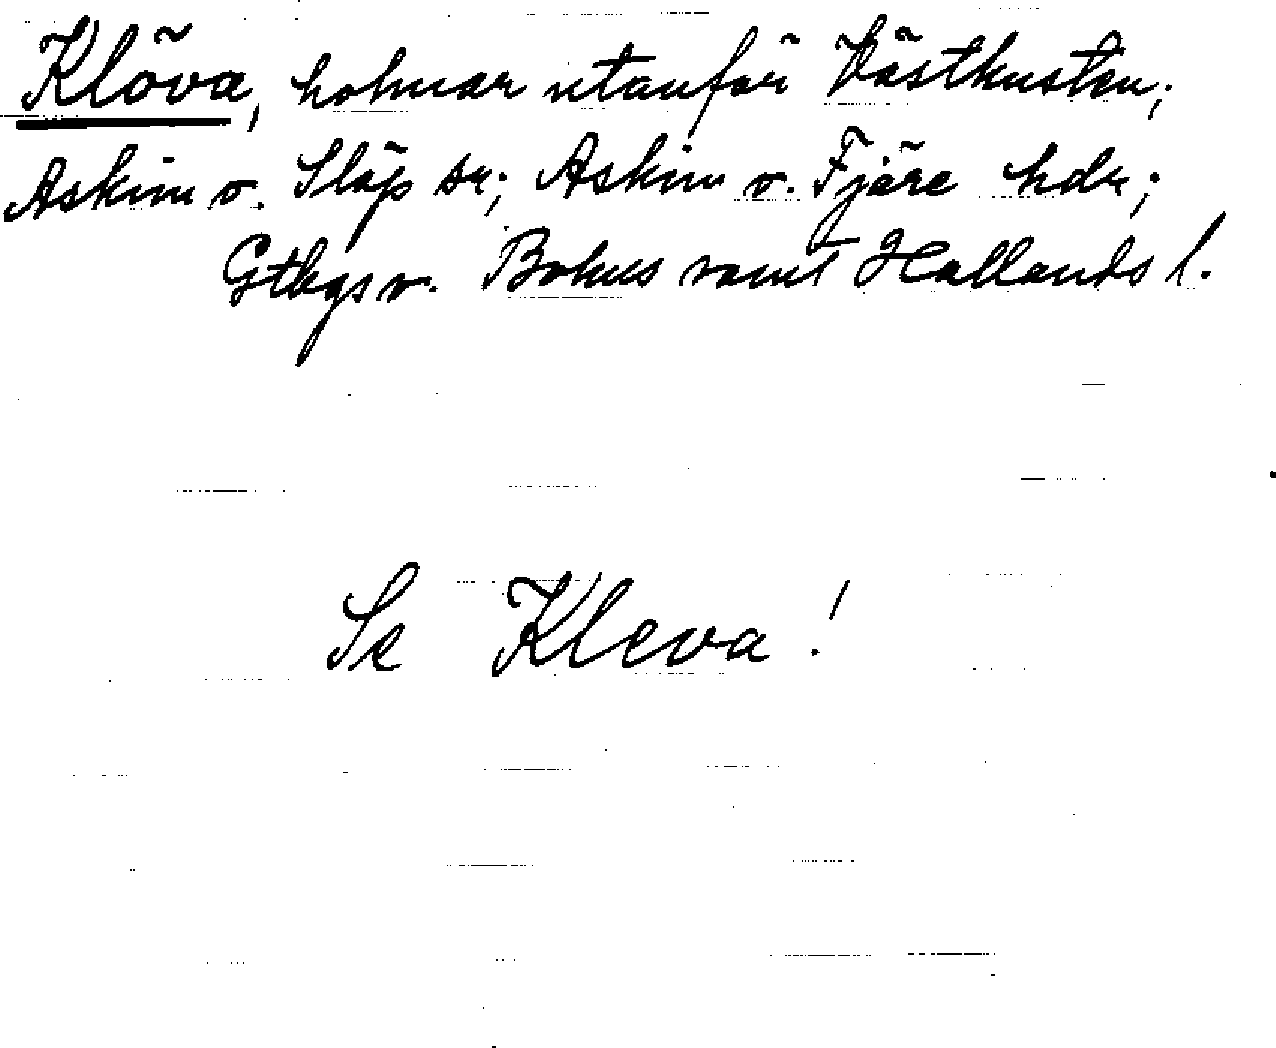 Klöva, holmar utanför Västkusten;
Askim o. Släp snr; Askim o. Fjäre hdr;
Gtbgs o. Bohus samt Hallands l.
Se Kleva!